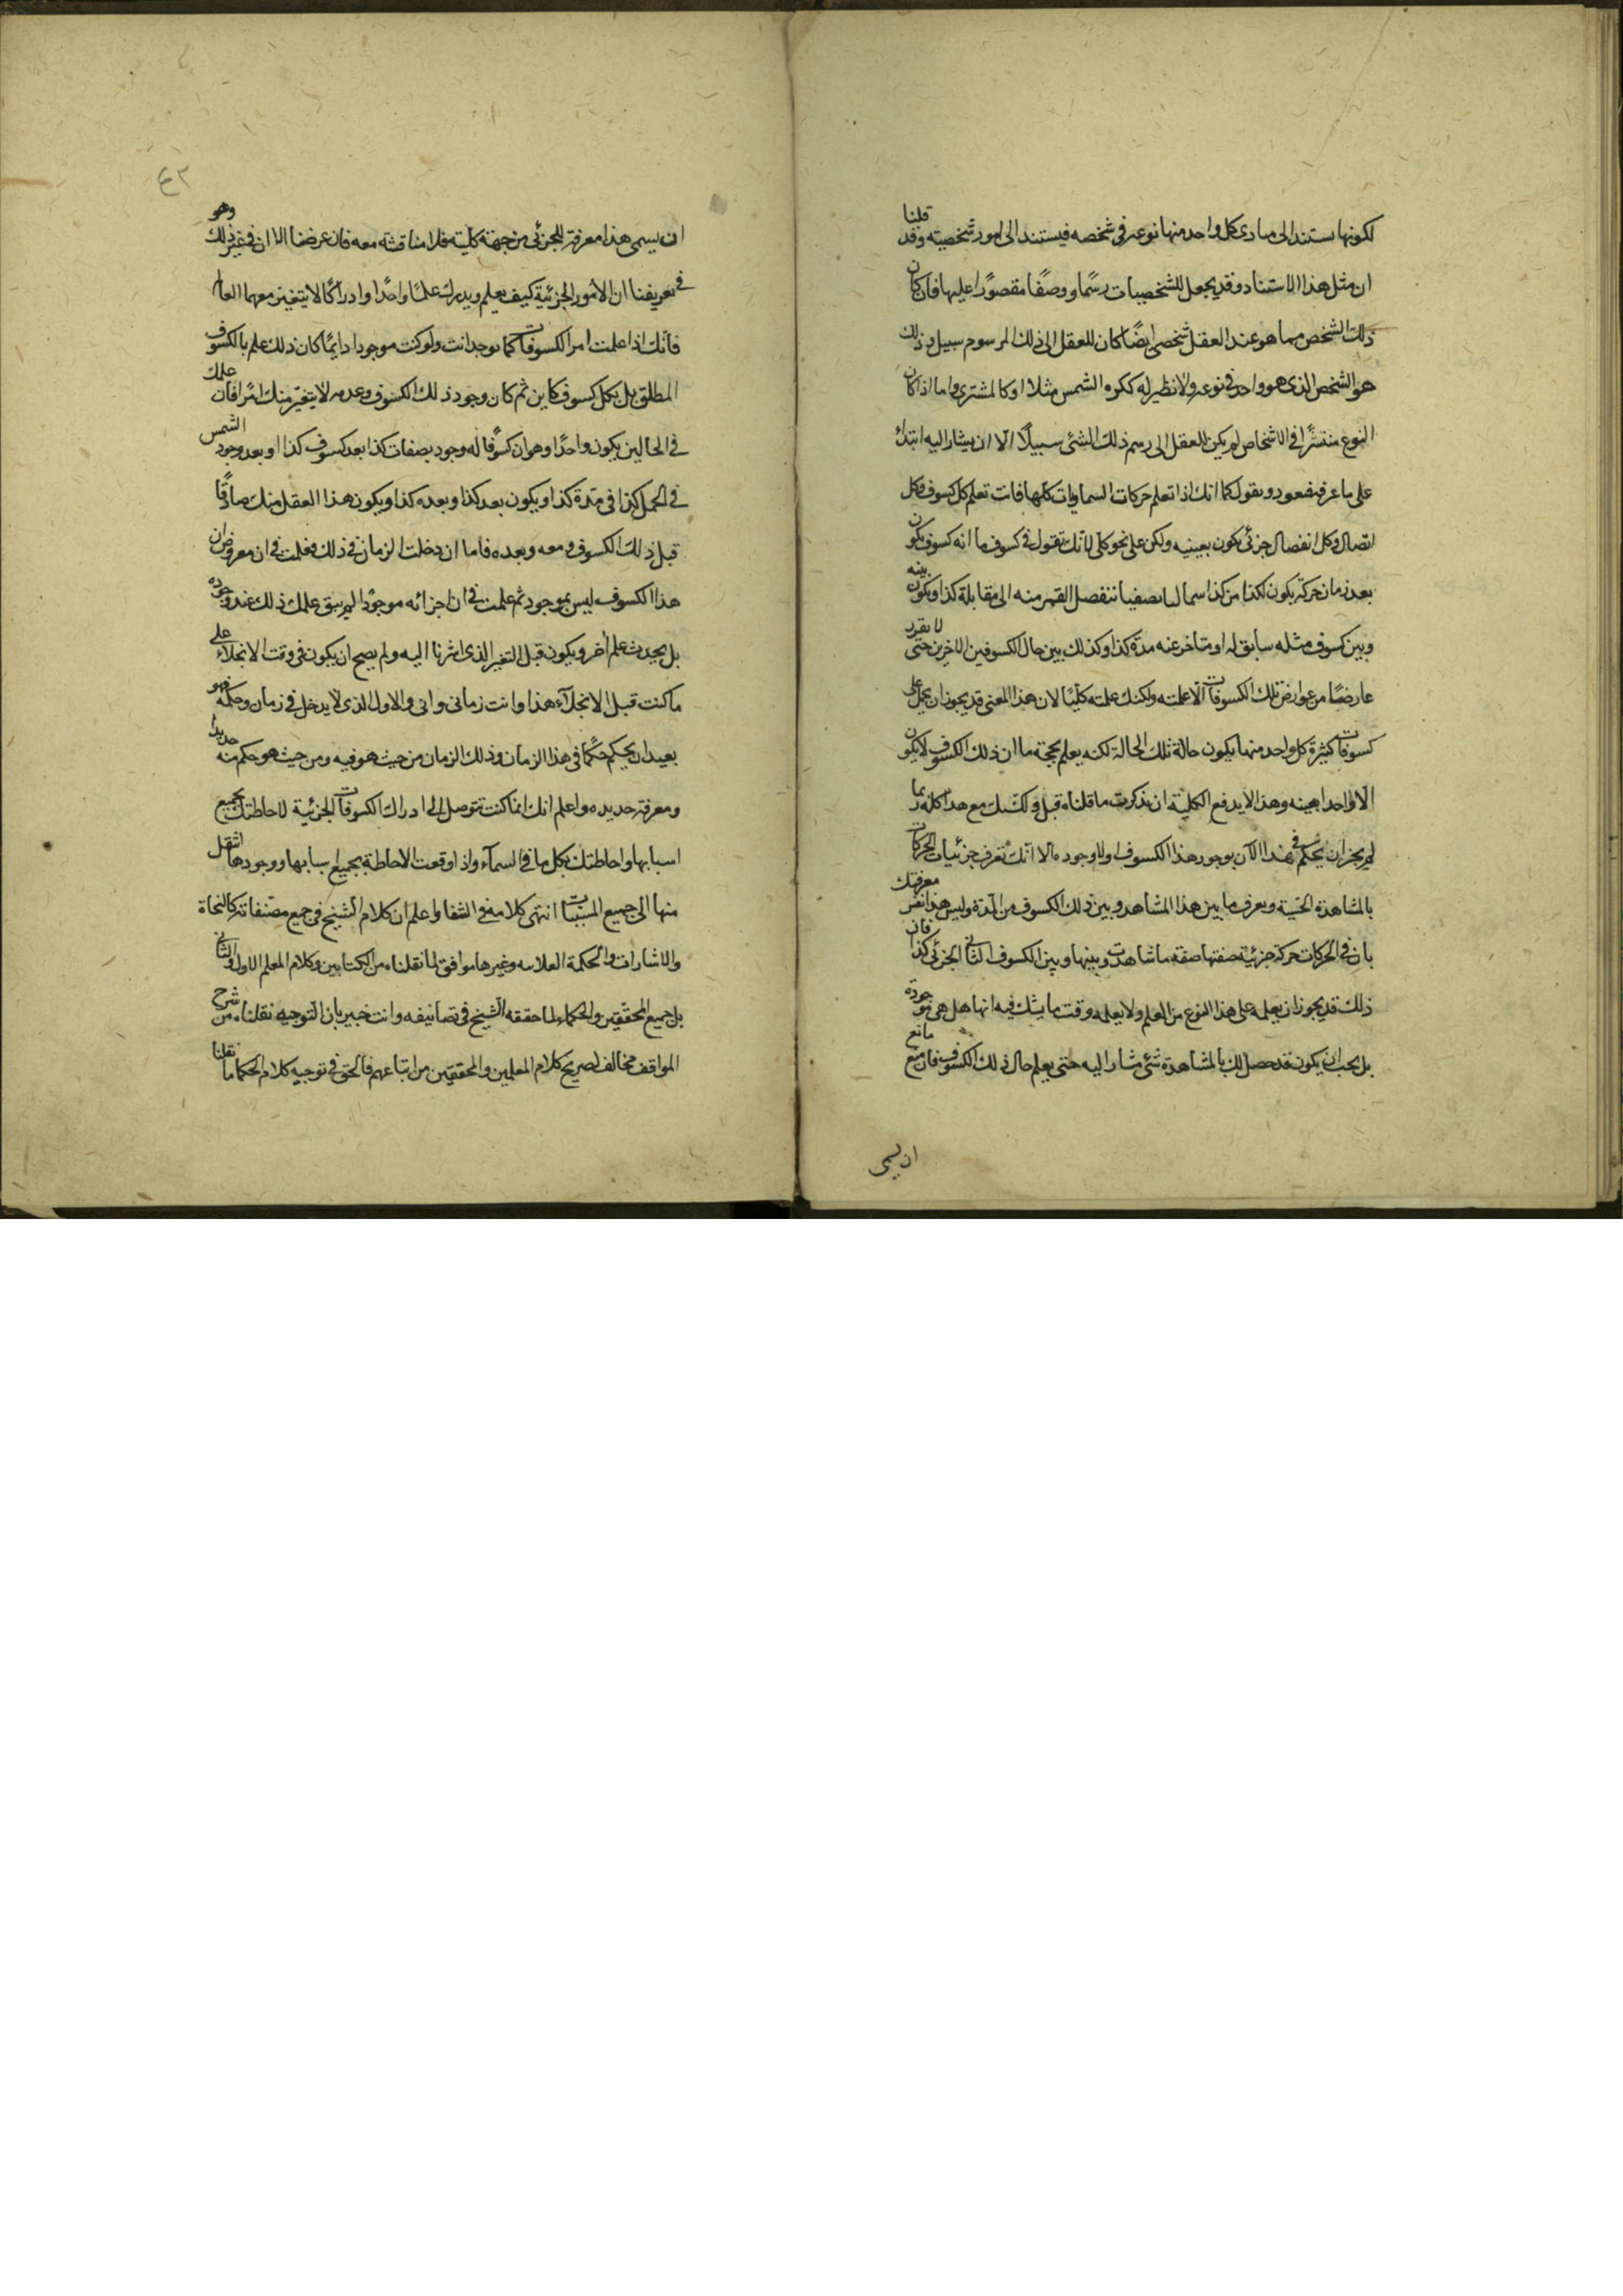 لكونها يستند الى مبادى كل واحد منها نوعه فى شخصه فيستند الى امور شخصية وقد قلنا
ان مثل هذا الاستناد وقد يجعل للشخصيات رسمًا ووصفًا مقصورًا عليها فان كان
ذلك الشخص مما هو عند العقل شخصى ايضًا كان للعقل الى ذلك المرسوم سبيل وذلك
هو الشخص الذى هو واحد فى نوعه ولا نظير له ككره الشمس مثلا او كالمشترى واما اذا كان
النوع منتشرًا فى الاشخاص لم يكن للعقل الى رسم ذلك الشئ سبيلًا الّا ان يشار اليه ابتداء
على ما عرفته فنعود ونقول كما انك اذا تعلم حركات السماويات كلها فانت تعلم كل كسوف وكل
اتصال وكل انفصال جزئى يكون بعينه ولكن على نحو كلى لانك تقول فى كسوف ما انه كسوف يكون
بعد زمان حركة يكون لكذا من كذا سماليا نصفيا ينفصل القمر منه الى مقابلة كذا ويكون بينه
وبين كسوف مثله سابق له او متاخر عنه مدة كذا وكذلك بين حال الكسوفين الاخرين حتى لا يقدر
عارضًا من عوارض تلك الكسوفات الّا علمته ولكنك علمته كليًا لان هذا المعنى قد يجوز ان يحمل على
كسوفات كثيرة كل واحد منها يكون حالة تلك الحالة لكنه يعلم بحجة ما ان ذلك الكسوف لا يكون
الا واحدا بعينه وهذا لا يدفع الكلية ان تذكرت ما قلناه قبل ولكنك مع هذا كله ربما
لم يجز ان يحكم فى هذا الآن بوجود هذا الكسوف اولا وجوده الا انك تعرف جزئيات الحركات
بالمشاهدة الحسية ويعرف ما بين هذا المشاهد وبين ذلك الكسوف من المدة وليس هذا نفس معرفتك
بان فى الحركات حركة جزئية صفتها صفة ما شاهدت وبينها وبين الكسوف الثانى الجزئى كذا فان
ذلك قد يجوز ان يعلمه على هذا النوع من العلم ولا يعلمه وقت ما يشك فيه انها هل هى موجودة
بل يجب ان يكون قد حصل لك بالمشاهدة شئ مشار اليه حتى يعلم حال ذلك الكسوف فان منع مانع
ان يسمى
٤٢
ان يسمى هذا معرفة للجزئى من جهة كلية فلا مناقشة معه فان غرضنا الا ان فى غير ذلك وهو
فى تعريفنا ان الامور الجزئية كيف يعلم ويدرك علمًا واحدًا وادراكًا لا يتغير معهما العالم
فانك اذا علمت امر الكسوفات كما توجد انت ولو كنت موجودا دايمًا كان ذلك علم بالكسوف
المطلق بل بكل كسوف كاين ثم كان وجود ذلك الكسوف وعدمه لا يتغير منك امرًا فان علمك
فى الحالين يكون واحدًا وهو ان كسوفا له وجود بصفات كذا بعد كسوف كذا او بعد وجود الشمس
فى الحمل كذا فى مدة كذا ويكون بعد كذا وبعده كذا ويكون هذا العقل منك صادقًا
قبل ذلك الكسوف ومعه وبعده فاما ان دخلت الزمان فى ذلك فعلمت فى ان معروض ان
هذا الكسوف ليس بموجود ثم علمت فى ان اجزائه موجودًا لم يبق علمك ذلك عند وجوده
بل يحدث علم آخر ويكون قبل التغير الذى اشرنا اليه ولم يصح ان يكون فى وقت الانجلاء على
ما كنت قبل الانجلاء هذا وانت زمانى وانى والاول الذى لا يدخل فى زمان وحكمه فهو
بعيد ان يحكم حكمًا فى هذا الزمان وذلك الزمان من حيث هو فيه ومن حيث هو حكم منه جديدًا
ومعرفة جديده واعلم انك انما كنت تتوصل الى ادراك الكسوفات الجزئية لاحاطتك بجميع
اسبابها واحاطتك بكل ما فى السماء واذا وقعت الاحاطة بجميع اسبابها ووجودها انتقل
منها الى جميع المسببات انتهى كلامه فى الشفا واعلم ان كلام الشيخ فى جميع مصنفاته كالنجاة
والاشارات والحكمة العلائيه وغيرها موافق لما نقلناه من الكتابين وكلام المعلم الاول والثانى
بل جميع المحققين والحكماء لما حققه الشيخ فى تصانيفه وانت خبير بان التوجيه نقلناه من شرح
المواقف مخالف لصريح كلام المعلمين والمحققين من اتباعهم فالحق فى توجيه كلام الحكما ما نقلنا